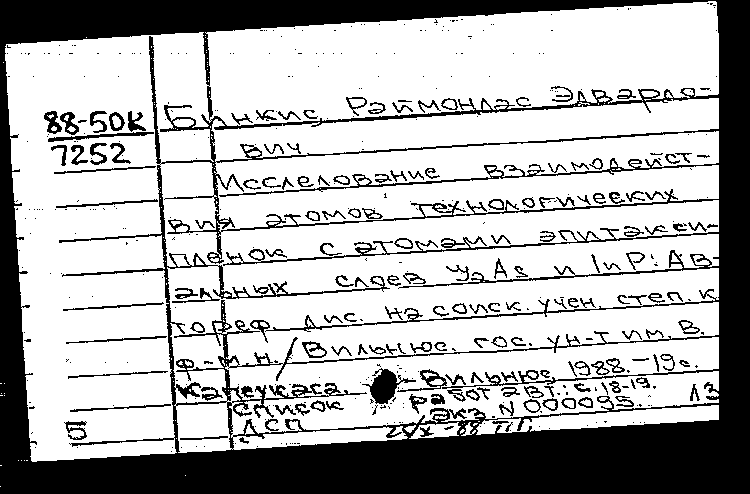 88-50К Бинкис, Раймондас Эдвардо-
7252 вич
Исследование взаимодейст-
вия атомов технологических
пленок с атомами эпитакси-
альных слоев YaAs и InP: Ав-
тореф. дис. на соиск. учен. степ. к.
ф.-м.н. / Вильнюс. гос. ун-т им. В.
Капсукаса. - Вильнюс, 1988. - 19 с.
Список работ авт.: с. 18-19.
ДСП Экз. N 000095. 13
5 25/X -88